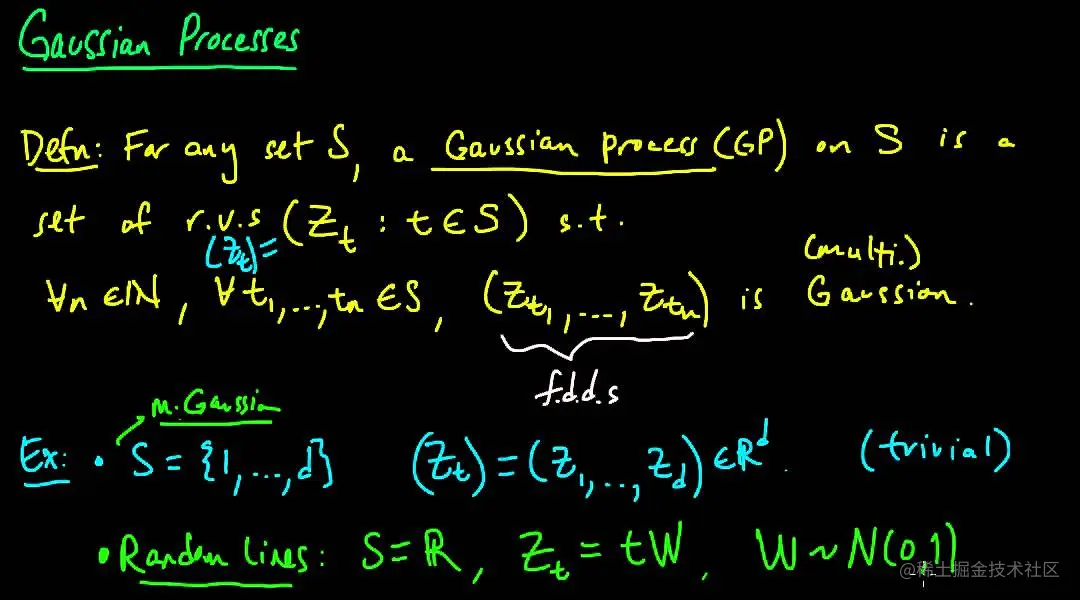 Gaussian Processes
Defn: For any set S, a Gaussian process (GP) on S is a
set of r.v.s (Z_t : t ∈ S) s.t.
(Z_t) =
(multi.)
∀n ∈ ℕ, ∀ t_1, ..., t_n ∈ S, (Z_{t_1}, ..., Z_{t_n}) is Gaussian.
f.d.d.s
m. Gaussian
Ex: • S = {1, ..., d} (Z_t) = (Z_1, ..., Z_d) ∈ ℝ^d. (trivial)
• Random Lines: S = ℝ, Z_t = tW, W ~ N(0,1)
@稀土掘金技术社区